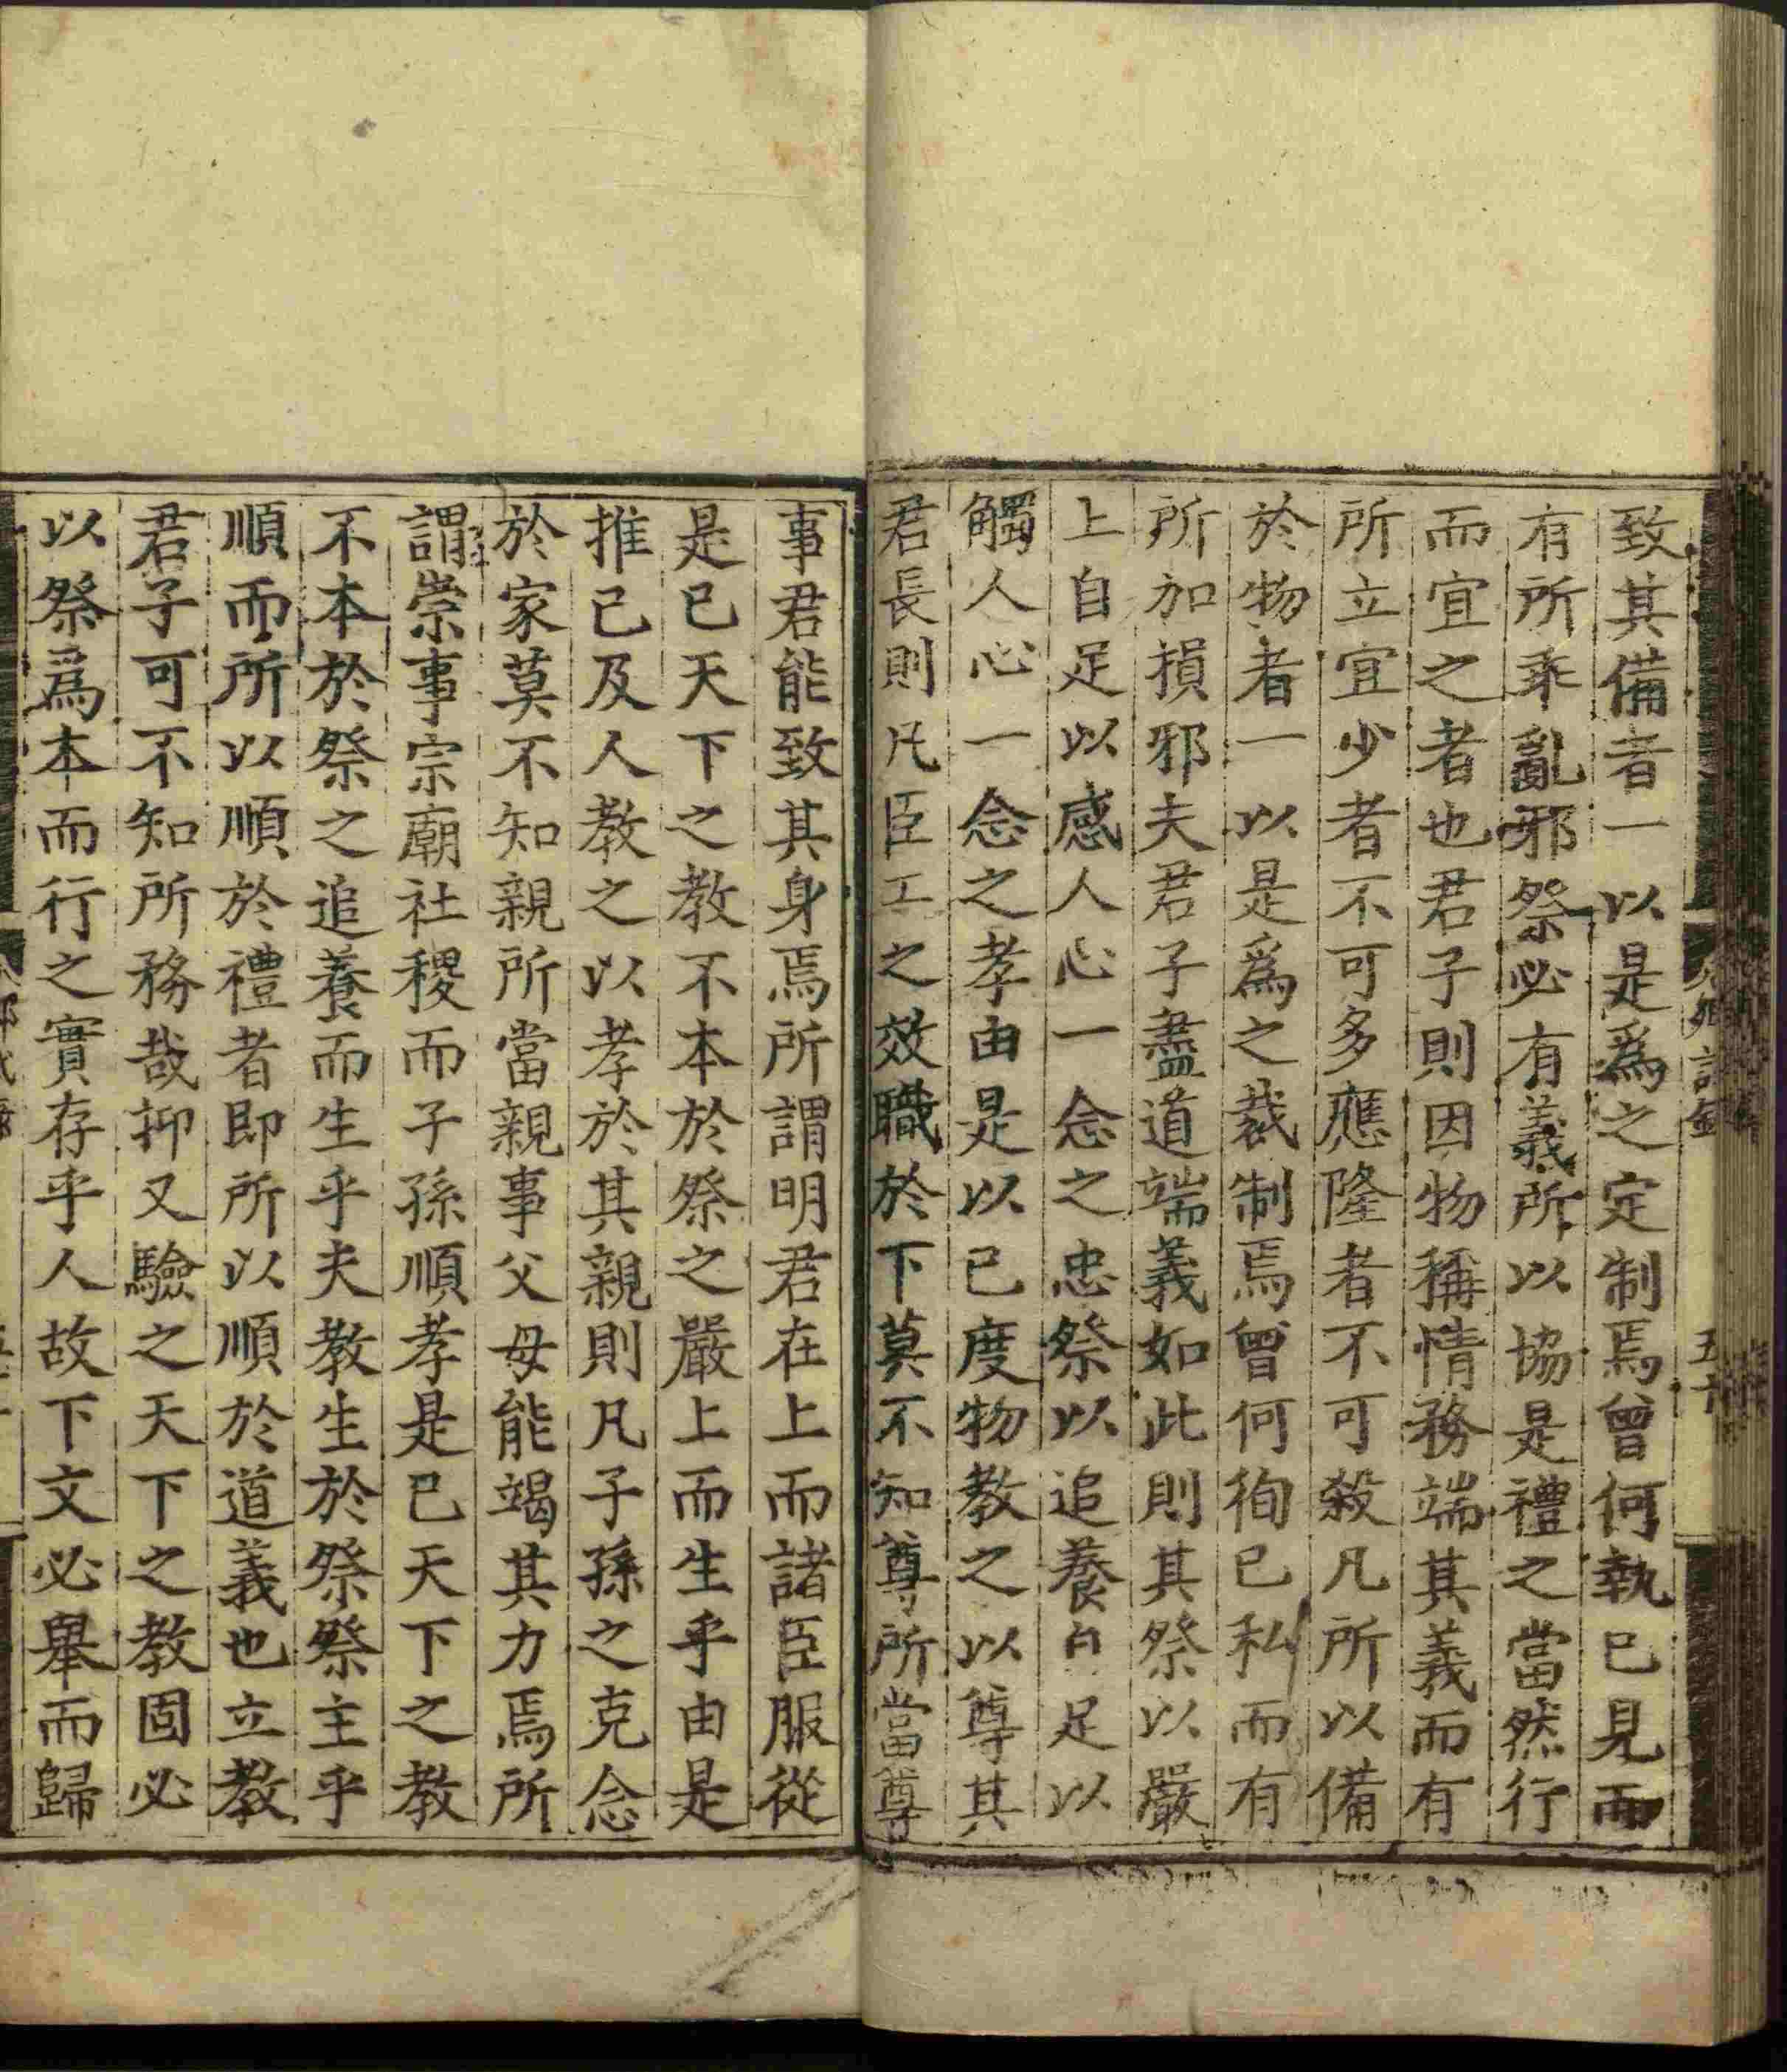 致其備者一以是爲之定制焉曾何執已見而
有所乖亂邪祭必有義所以協是禮之當然行
而宜之者也君子則因物稱情務端其義而有
所立宜少者不可多應隆者不可殺凡所以備
於物者一以是爲之裁制焉曾何徇已私而有
所加損邪夫君子盡道端義如此則其祭以嚴
上自足以感人心一念之忠祭以追養自足以
觸人心一念之孝由是以已度物教之以尊其
君長則凡臣工之效職於下莫不知尊所當尊
事君能致其身焉所謂明君在上而諸臣服從
是已天下之教不本於祭之嚴上而生乎由是
推己及人教之以孝於其親則凡子孫之克念
於家莫不知親所當親事父母能竭其力焉所
謂崇事宗廟社稷而子孫順孝是已天下之教
不本於祭之追養而生乎夫教生於祭祭主乎
順而所以順於禮者即所以順於道義也立教
君子可不知所務哉抑又驗之天下之教固必
以祭爲本而行之實存乎人故下文必舉而歸